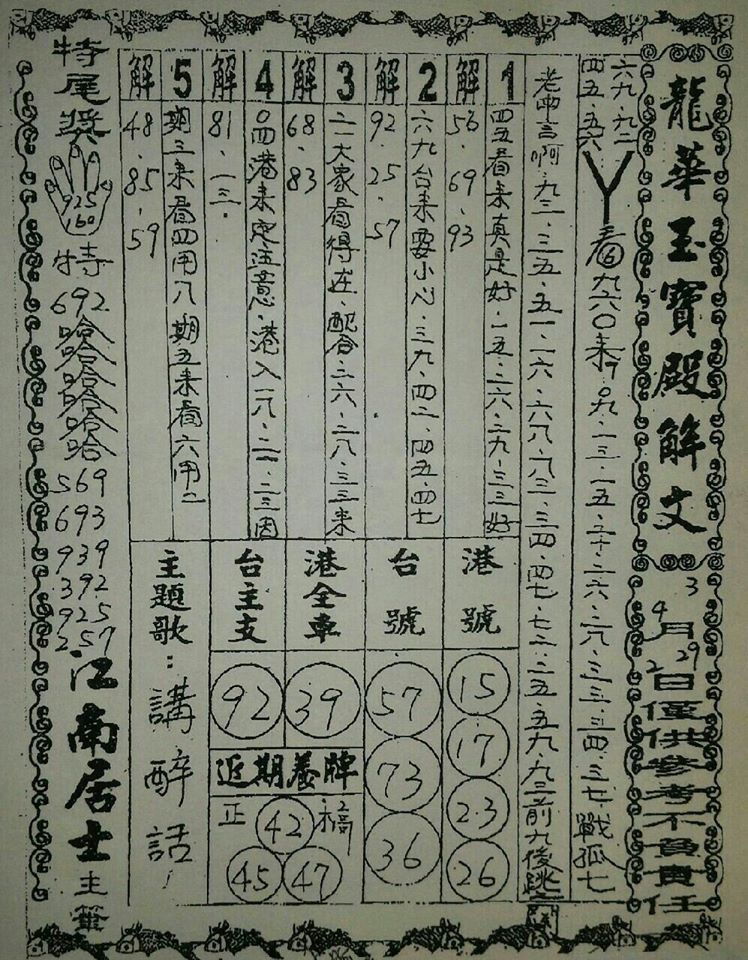 龍華玉寶殿解文
3 29
4月2日僅供參考不負責任
六九.九二
四五.五六
看九六0来
0九.一三.一五.二十.二六.二八.三三.三四.三七.戰孤七
老申言啊.九三.三五.五一.一六.六八.八三.三四.四七.七二.二五.五九.九三前九後跳
1 四五看来真是好.一五.二六.二九.三三好
解 56.69.93
2 六九台来要小心.三九.四二.四五.四七
解 92.25.57
3 二一大家看得在.配合.二六.二八.三三来
解 68.83
4 0四港来定注意.港入一八.二一.二三因
解 81.一三.
5 期三来看四用八 期五来看六用二
解 48.85.59
港號
15
17
23
26
台號
57
73
36
港全車
39
台主支
92
近期養牌
正 福
42
45 47
主題歌:講醉話
特尾獎
925
160
特
692
哈哈哈哈哈哈
569
693
939
392
925
257
江南居士主筆